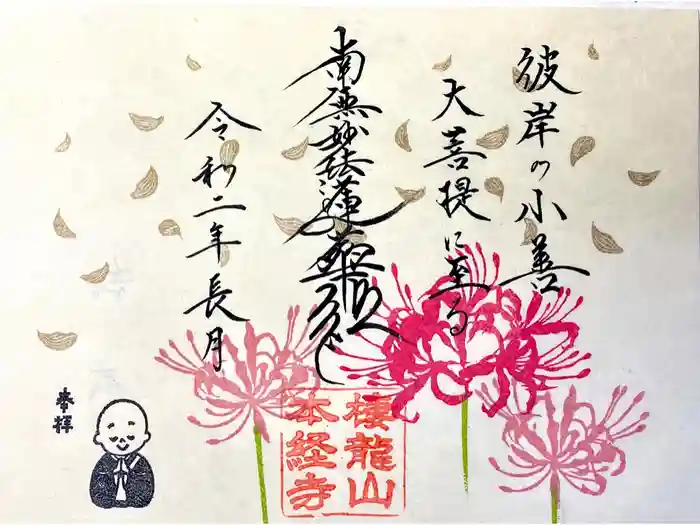 彼岸の小善
大菩提に至る
南無妙法蓮華経
令和二年長月
奉拝
棲龍山
本経寺